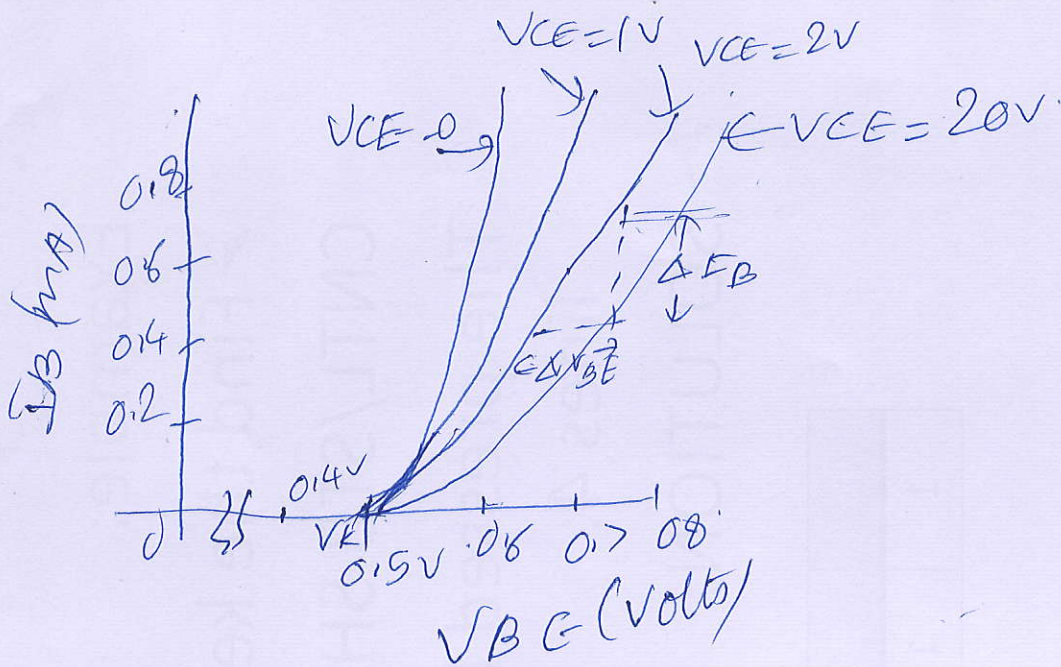 VCE=1V
VCE=2V
VCE=0
VCE=20V
0.8
0.6
0.4
0.2
IB (mA)
ΔIB
ΔVBE
0.4V
0
VK
0.5V
0.6
0.7
08
VBE (Volts)